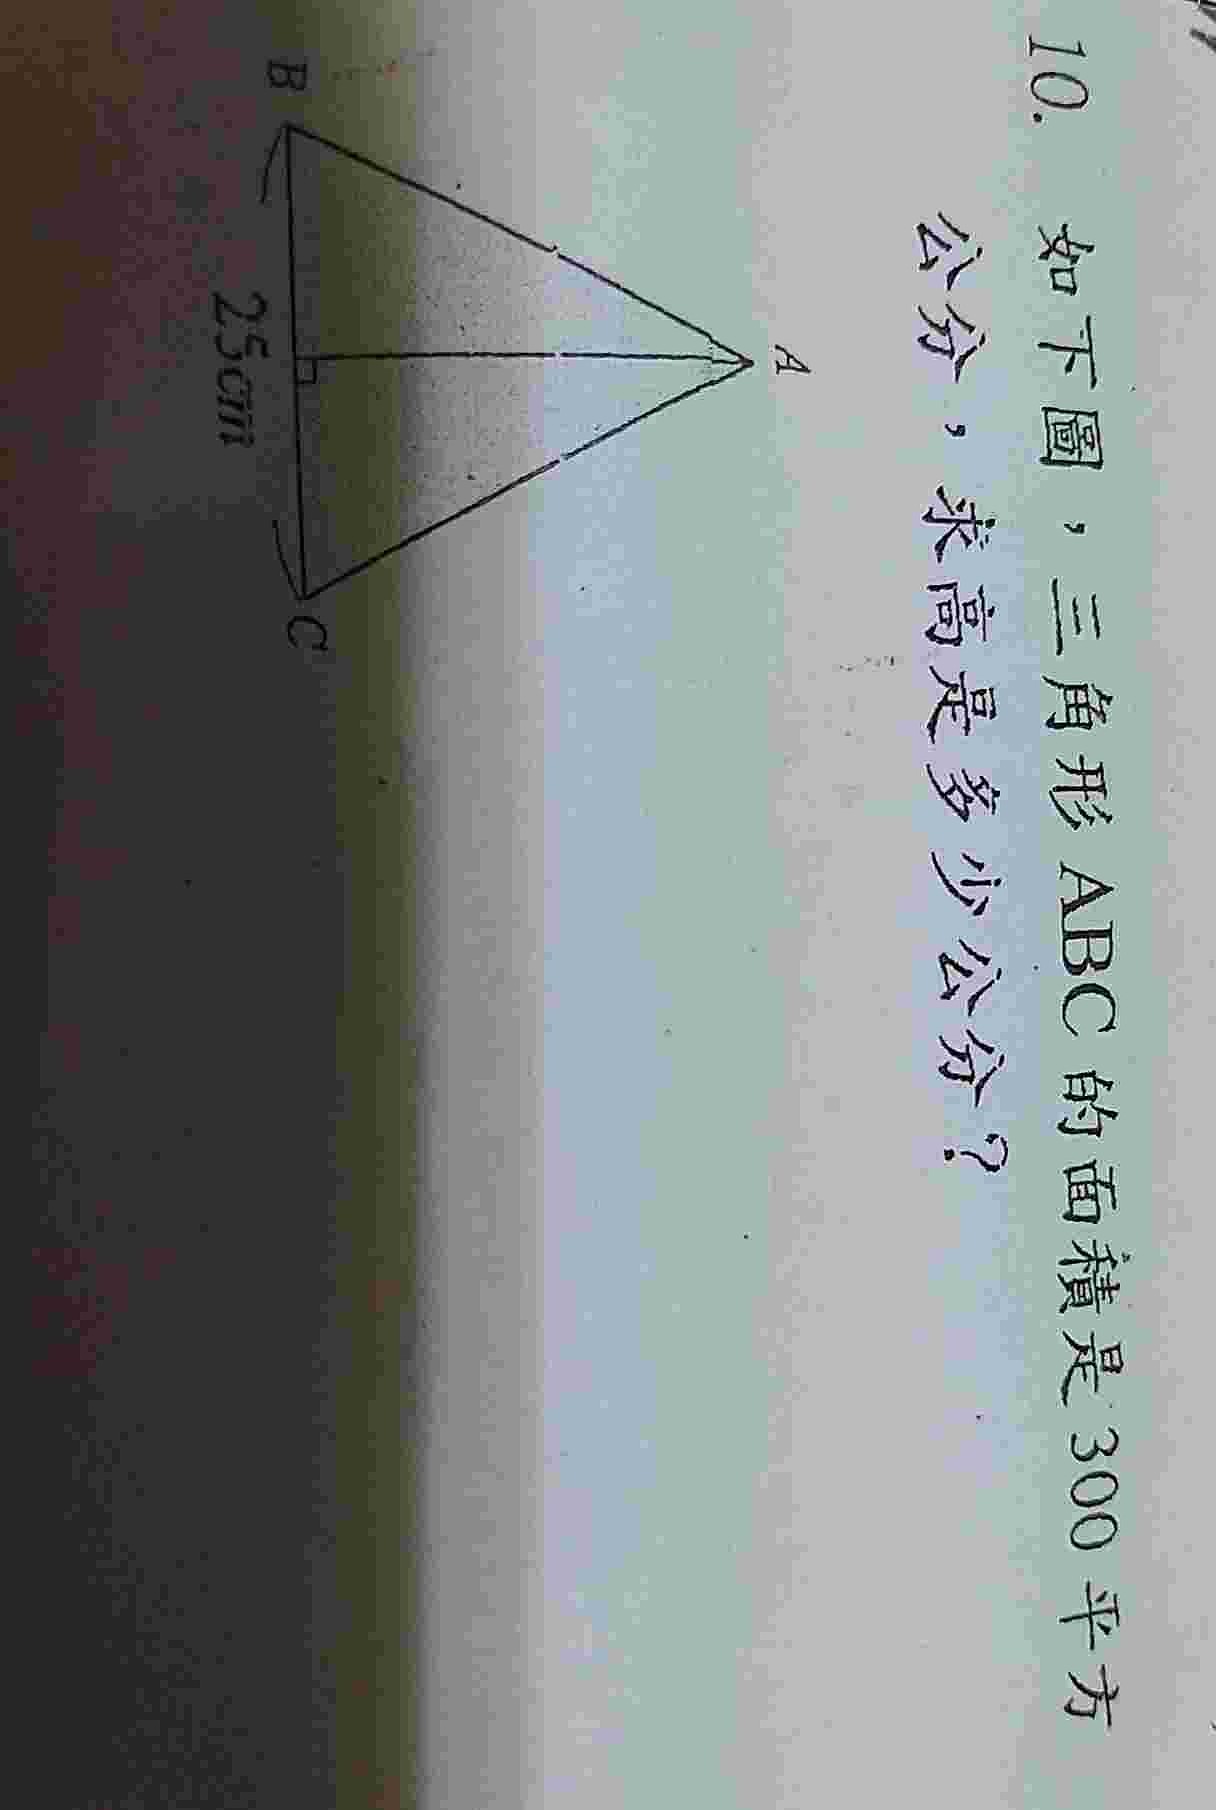 10. 如下圖，三角形ABC的面積是300平方
公分，求高是多少公分？
A
B
C
25cm